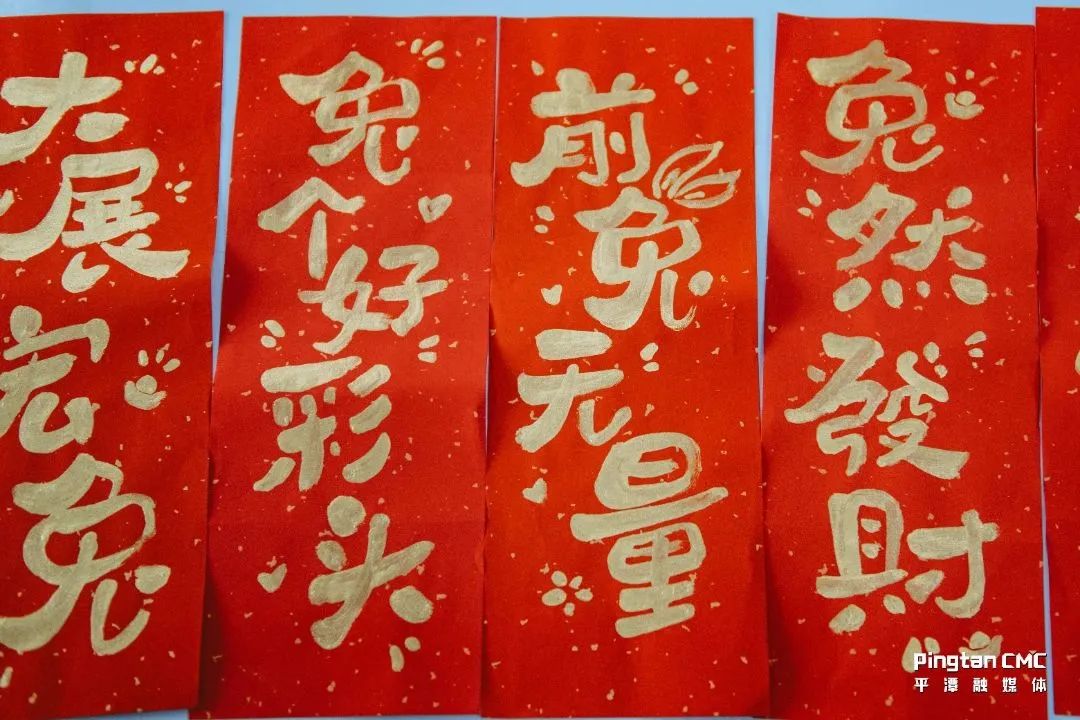 大展宏兔
兔个好彩头
前兔无量
兔然發財
Pingtan CMC
平潭融媒体